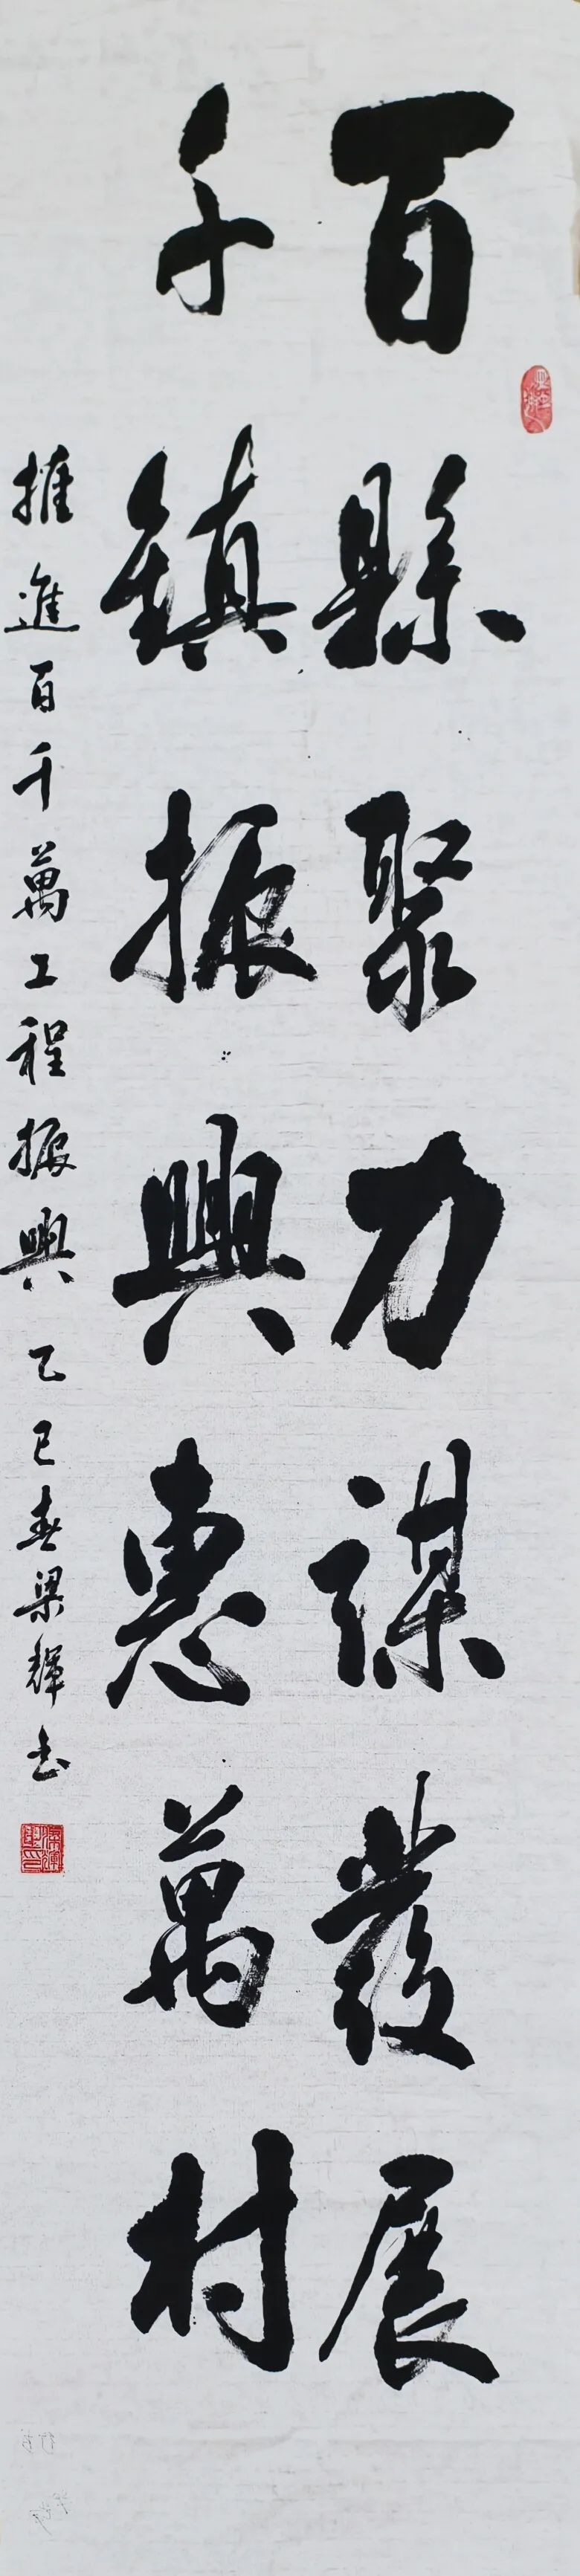 百縣聚力謀發展
千鎮振興惠萬村
推進百千萬工程振興乙巳春梁輝书